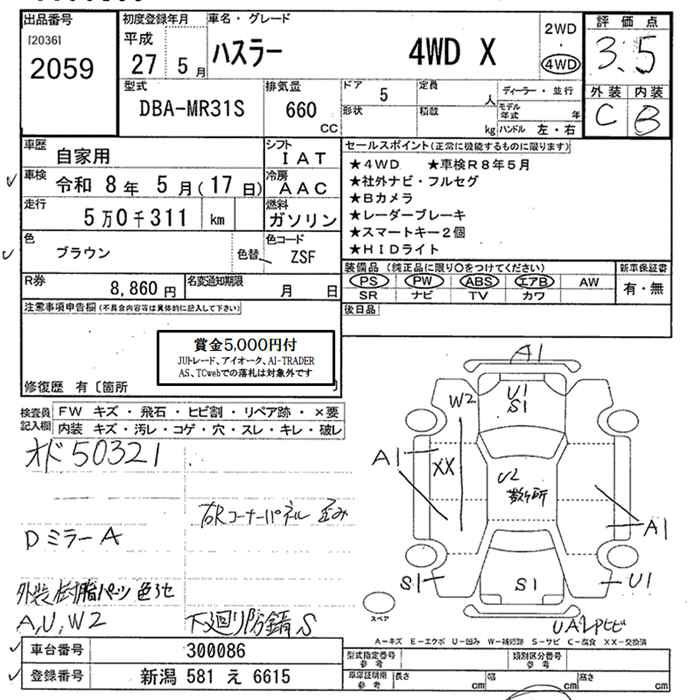 出品番号
[2036]
2059
初度登録年月
平成
27 5月
車名・グレード
ハスラー 4WD X
2WD
・
4WD
評価点
3.5
外装 内装
C B
型式
DBA-MR31S
排気量
660
CC
ドア
5
定員
人
ディーラー・並行
形状
積載
kg
モデル
年式 年
ハンドル 左・右
車歴
自家用
シフト
IAT
車検
令和 8年 5月(17日)
冷房
AAC
走行
5万0千311 km
燃料
ガソリン
色
ブラウン
色替
色コード
ZSF
R券
8,860円
名変通知期限
月 日
注意事項申告欄(不具合内容等は具体的に記入して下さい)
賞金5,000円付
JUトレード、アイオーク、AI-TRADER
AS、TCwebでの落札は対象外です
修復歴 有〔箇所
セールスポイント(正常に機能するものに限ります)
★4WD ★車検R8年5月
★社外ナビ・フルセグ
★Bカメラ
★レーダーブレーキ
★スマートキー2個
★HIDライト
装備品 (純正品に限り○をつけてください)
PS PW ABS エアB AW
SR ナビ TV カワ
新車保証書
有・無
後日品
検査員
記入欄
FW キズ・飛石・ヒビ割・リペア跡・×要
内装 キズ・汚レ・コゲ・穴・スレ・キレ・破レ
オド50321
右Rコーナーパネル歪み
DミラーA
外装樹脂パーツ色アセ
A,U,W2
下廻り防錆S
A1
W2
U1
S1
A1
XX
U2
数ヶ所
A1
S1
S1
U1
スペア
UALPヒビ
A-キズ E-エクボ U-凹み W-補修跡 S-サビ C-腐食 XX-交換済
車台番号
300086
登録番号
新潟 581 え 6615
型式指定番号
参考
類別区分番号
参考
車庫証明用
参考
長さ cm
幅 cm
高さ cm